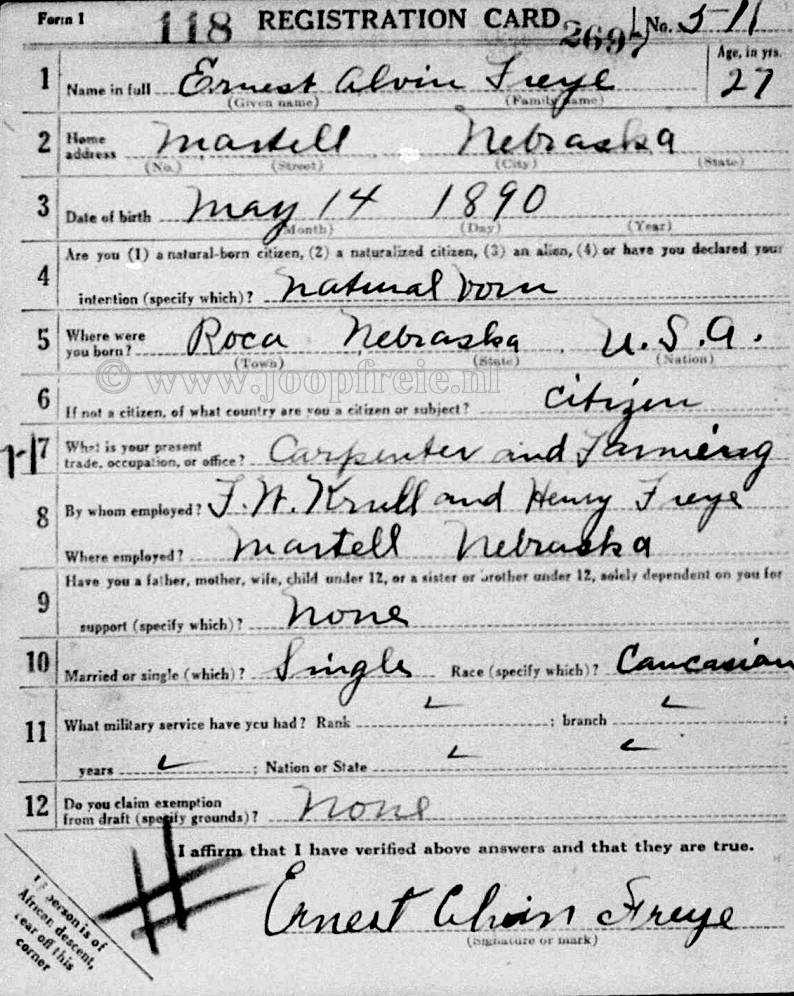 Form 1 118 REGISTRATION CARD 269 No. 5-11
1 Name in full Ernest Alvin Freye Age, in yrs. 27
(Given name) (Family name)
2 Home address Martell Nebraska
(No.) (Street) (City) (State)
3 Date of birth May 14 1890
(Month) (Day) (Year)
Are you (1) a natural-born citizen, (2) a naturalized citizen, (3) an alien, (4) or have you declared your
4 intention (specify which)? natural born
5 Where were you born? Roca Nebraska U.S.A.
(Town) (State) (Nation)
© www.joopfreie.nl
6 If not a citizen, of what country are you a citizen or subject? Citizen
7 What is your present trade, occupation, or office? Carpenter and Farming
8 By whom employed? F. W. Krull and Henry Freye
Where employed? Martell Nebraska
Have you a father, mother, wife, child under 12, or a sister or brother under 12, solely dependent on you for
9 support (specify which)? None
10 Married or single (which)? Single Race (specify which)? Caucasian
11 What military service have you had? Rank ; branch ;
years ; Nation or State
12 Do you claim exemption from draft (specify grounds)? None
I affirm that I have verified above answers and that they are true.
Ernest Alvin Freye
(Signature or mark)
If person is of
African descent,
tear off this
corner